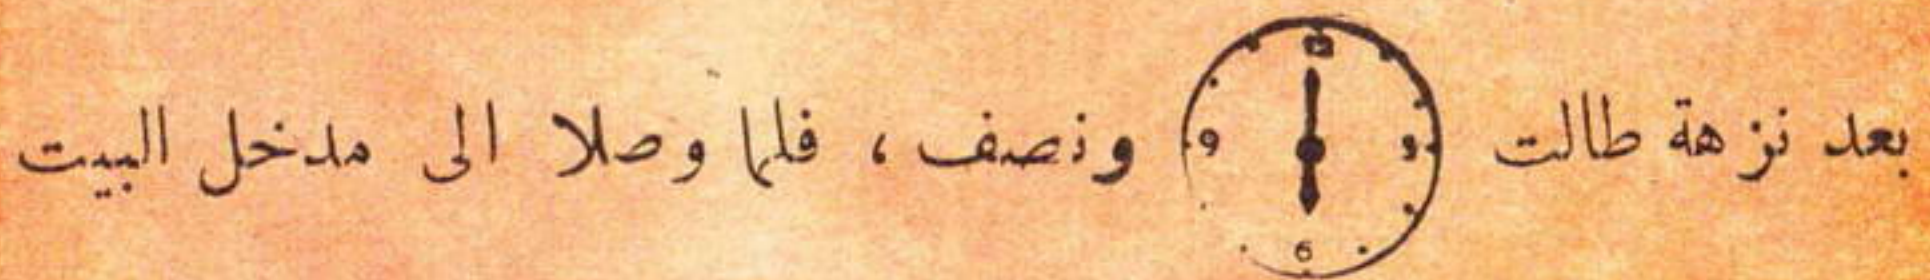 بعد نزهة طالت 12 3 6 9 ونصف ، فلما وصلا الى مدخل البيت